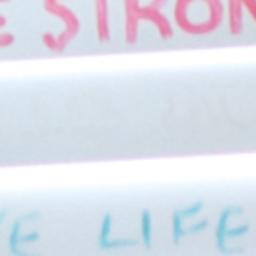 E STRON
E LIFE